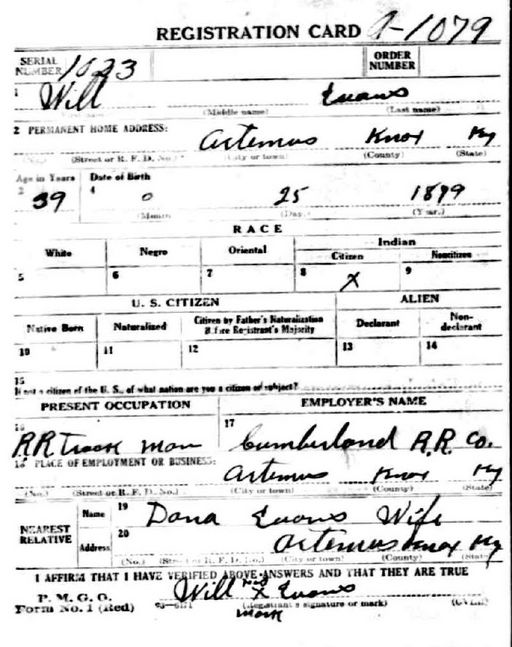 REGISTRATION CARD A-1079
SERIAL NUMBER 1023 ORDER NUMBER
1 Will Evans
(Middle name) (Last name)
2 PERMANENT HOME ADDRESS: Artemus Knox Ky
(No.) (Street or R. F. D. No.) (City or town) (County) (State)
Age in Years Date of Birth
3 39 4 0 25 1879
(Month) (Day) (Year)
RACE
White Negro Oriental Indian
Citizen Noncitizen
5 6 7 8 X 9
U. S. CITIZEN ALIEN
Native Born Naturalized Citizen by Father's Naturalization Before Registrant's Majority Declarant Non-declarant
10 11 12 13 14
15
If not a citizen of the U. S., of what nation are you a citizen or subject?
PRESENT OCCUPATION EMPLOYER'S NAME
16 R.R Track Man 17 Cumberland R.R. Co.
18 PLACE OF EMPLOYMENT OR BUSINESS: Artemus Knox Ky
(No.) (Street or R. F. D. No.) (City or town) (County) (State)
NEAREST RELATIVE Name 19 Dona Evans Wife
Address 20 Artemus Knox Ky
(No.) (Street or R. F. D. No.) (City or town) (County) (State)
I AFFIRM THAT I HAVE VERIFIED ABOVE ANSWERS AND THAT THEY ARE TRUE
P. M. G. O.
Form No. 1 (Red) Will his X Evans
(Registrant's signature or mark) (OVER)
mark